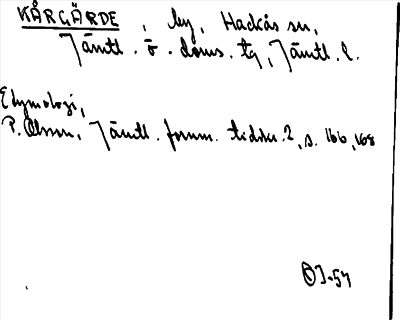 KÅRGÄRDE, by, Hackås sn,
Jämtl. ö. doms. tg, Jämtl. l.
Etymologi,
P. Olsson, Jämtl. fornm. tidskr. 2, s. 166, 168
J-54